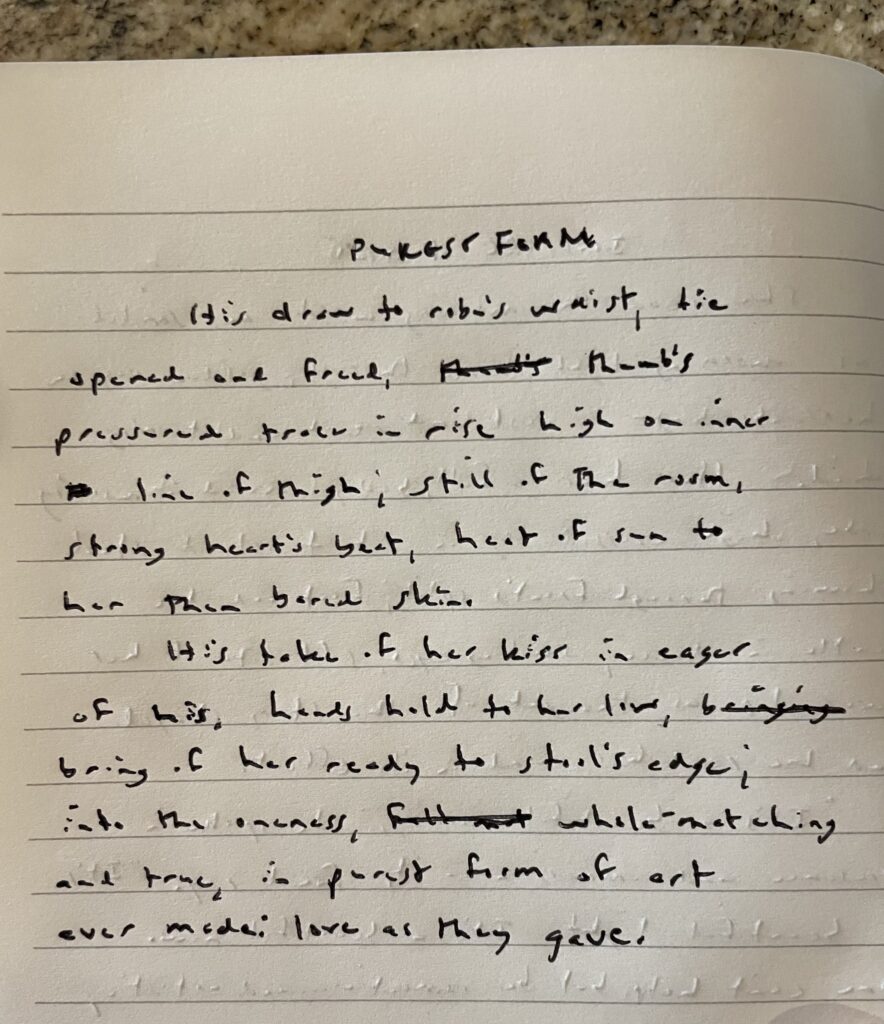 PUREST FORM
It's draw to robe's waist, tie
opened and freed, thumb's
pressured trace in rise high on inner
line of thigh; still of the room,
strong heart's beat, heat of sun to
her then bared skin.
It's take of her kiss in eager
of his, hands hold to her
bring of her ready to stool's edge;
into the oneness, whole-matching
and true, in purest form of art
ever made: love as they gave.